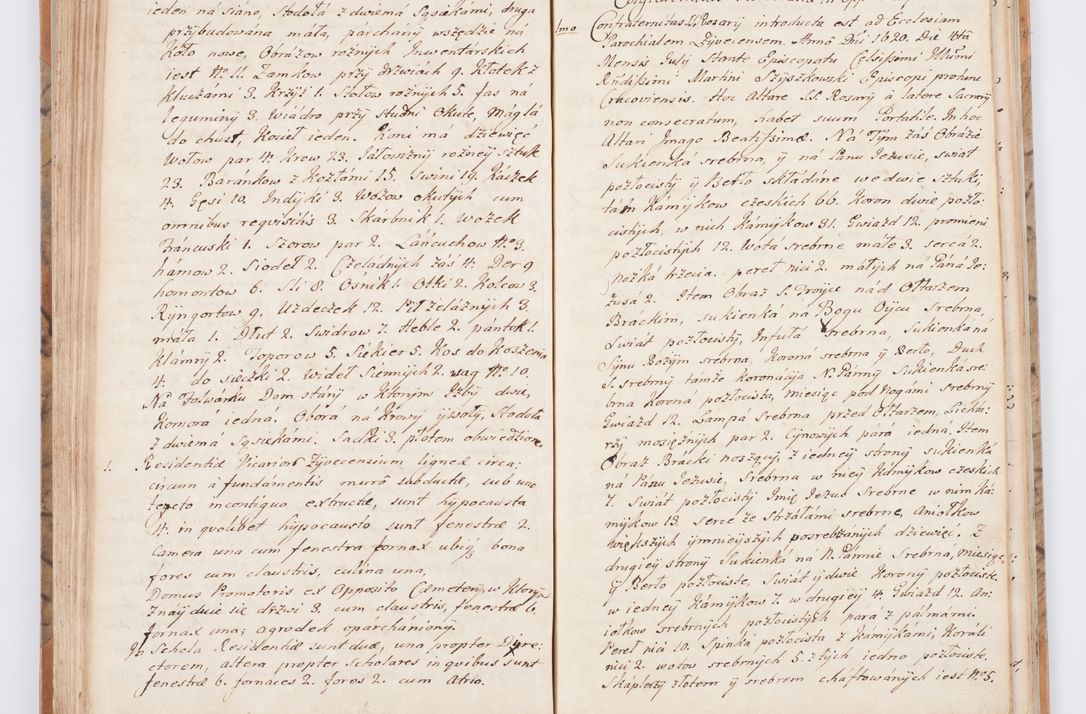 ieden na siano, Stodołá z dwiemá Sąsiekámi, druga
przybudowana mała, párchany wszędzie ná
koło nowe, Obrázow rożnych Inwentárskich
iest No 11. Zamkow przy drzwiách 9. Kłotek 2
kluczámi 3. Krzyż 1. Stołow rożnych 5. fas ná
leguminy 3. Wiádro przy Studni Okute, Mąglá
do chust, Kocieł ieden. Koni má dziewięć
Wołow par 4. Krow 23. Jáłowizny rożney sztuk
23. Báránkow z Kozłámi 15. Swini 19. Kaczek
4. Gęsi 10. Indyki 3. Wozow okutych cum
omnibus reqvisitis 3. Skárbnik 1. Wozek
Fráncuski 1. Szorow par 2. Láńcuchow No 3.
hámow 2. Siodeł 2. Czeladnych zás 4. Der 9
homontow 6. Sli 8. Osnik 1. Ośki 2. Kolcow 3.
Ryngortow 9. Uzdeczek 12. Pił zelaznych 3.
máła 1. Dłut 2. Swidrow 7. Heble 2. pántok 1.
Klámry 2. Toporow 5. Siekier 5. Kos do Koszenia
4. do sieczki 2. Wideł Siennych 2. wag No 10.
Ná Folwarku Dom stáry w Ktorym Izby dwie,
Komora iedná. Oborá ná Krowy y woły, Stodołá
z dwiemá Sąsiekámi. Sadki 3. płotem obwiedzione
1. Residentiæ Vicarior Zÿvecensium ligneæ circa:
circum á fundámentis muro subductæ, sub uno
tecto incontiguo extructæ, sunt hypocausta
4. in qvolibet hypocausto sunt fenestræ 2.
Camera una cum fenestra fornax ubiq bona
fores cum claustris, culina una,
Domus Promotoris ex opposito Cæmeterÿ, w Ktorym
Znayduie się drzwi 3. cum claustris, fenestræ 6.
fornax una; agrodek oparchániony.
In Schola Residentiæ sunt duæ, una propter Dire-
ctorem, altera propter Scholares in qvibus sunt
fenestræ 6. fornaces 2. fores 2. cum Atrio.
1mo Confraternitas SS. Rosarÿ introducta est ad Ecclesiam
Parochialem Zÿvecensem. Anno Dni 1620. Die 4ta
Mensis Julÿ Stante Episcopatu Celsissimi Illustri
Rndissimi Martini Szyszkowski Episcopi protunc
Cracoviensis. Hoc Altare SS. Rosarÿ á latere Sacrarÿ
non consecratum, habet suum Portatile. In hoc
Altari Imago Beatissimæ. Ná Tym zás Obrázie
Sukienká srebrna, ÿ ná Panu Jezusie, swiat
pozłocisty ÿ Berło składáne we dwie sztuki,
tám Kámykow czeskich 66. Koron dwie pozło:
cistych, w nich Kámykow 31. Gwiazd 12. promieni
pozłocistych 12. Wotá srebrne małe 3. sercá 2.
nozká trzecia. pereł nici 2. máłych ná Páná Je:
zusá 2. Item Obraz S. Troyce nád Ołtarzem
Bráckim, sukienká ná Bogu Oycu Srebrna,
Swiat pozłocisty, Infułá Srebrna, Sukienká ná
Synu Bozym srebrna, Koroná srebrna ÿ Berło, Duch
S. srebrny támze Koronacya N. Panny Sukienká sre:
brna Koroná pozłocista, miesiąc pod Nogámi srebrny
Gwiazd 12. Lámpá Srebrna przed Ołtarzem, Lichá:
rzy mosięznych par 2. Cynowych pará iedna. Item
Obraz Brácki noszący, z iedney strony Sukienká
ná Pánu Jezusie, Srebrna w niey Kámykow czeskich
7. Swiát pozłocisty Imię Jezus Srebrne w nim Ká:
mykow 13. serce ze strzałámi srebrne, Aniołkow
większych ymnieyszych posrebrzánych dziewięć. Z
drugiey strony Sukienká ná N. Pánnie Srebrna, miesiąc
ÿ Berło pozłociste, Swiát ÿ dwie Korony pozłociste
w iedney Kámykow 7. w drugiey 4. Gwiazd 12. An:
iołkow srebrnych pozłocistych pará z pálmámi
Pereł nici 10. Spinká pozłocista z Kámykámi, Koráli
nici 2. wotow srebrnych 5. z tych iedno pozłociste.
Szkáplerzy złotem ÿ srebrem cháftowanych iest No 5.